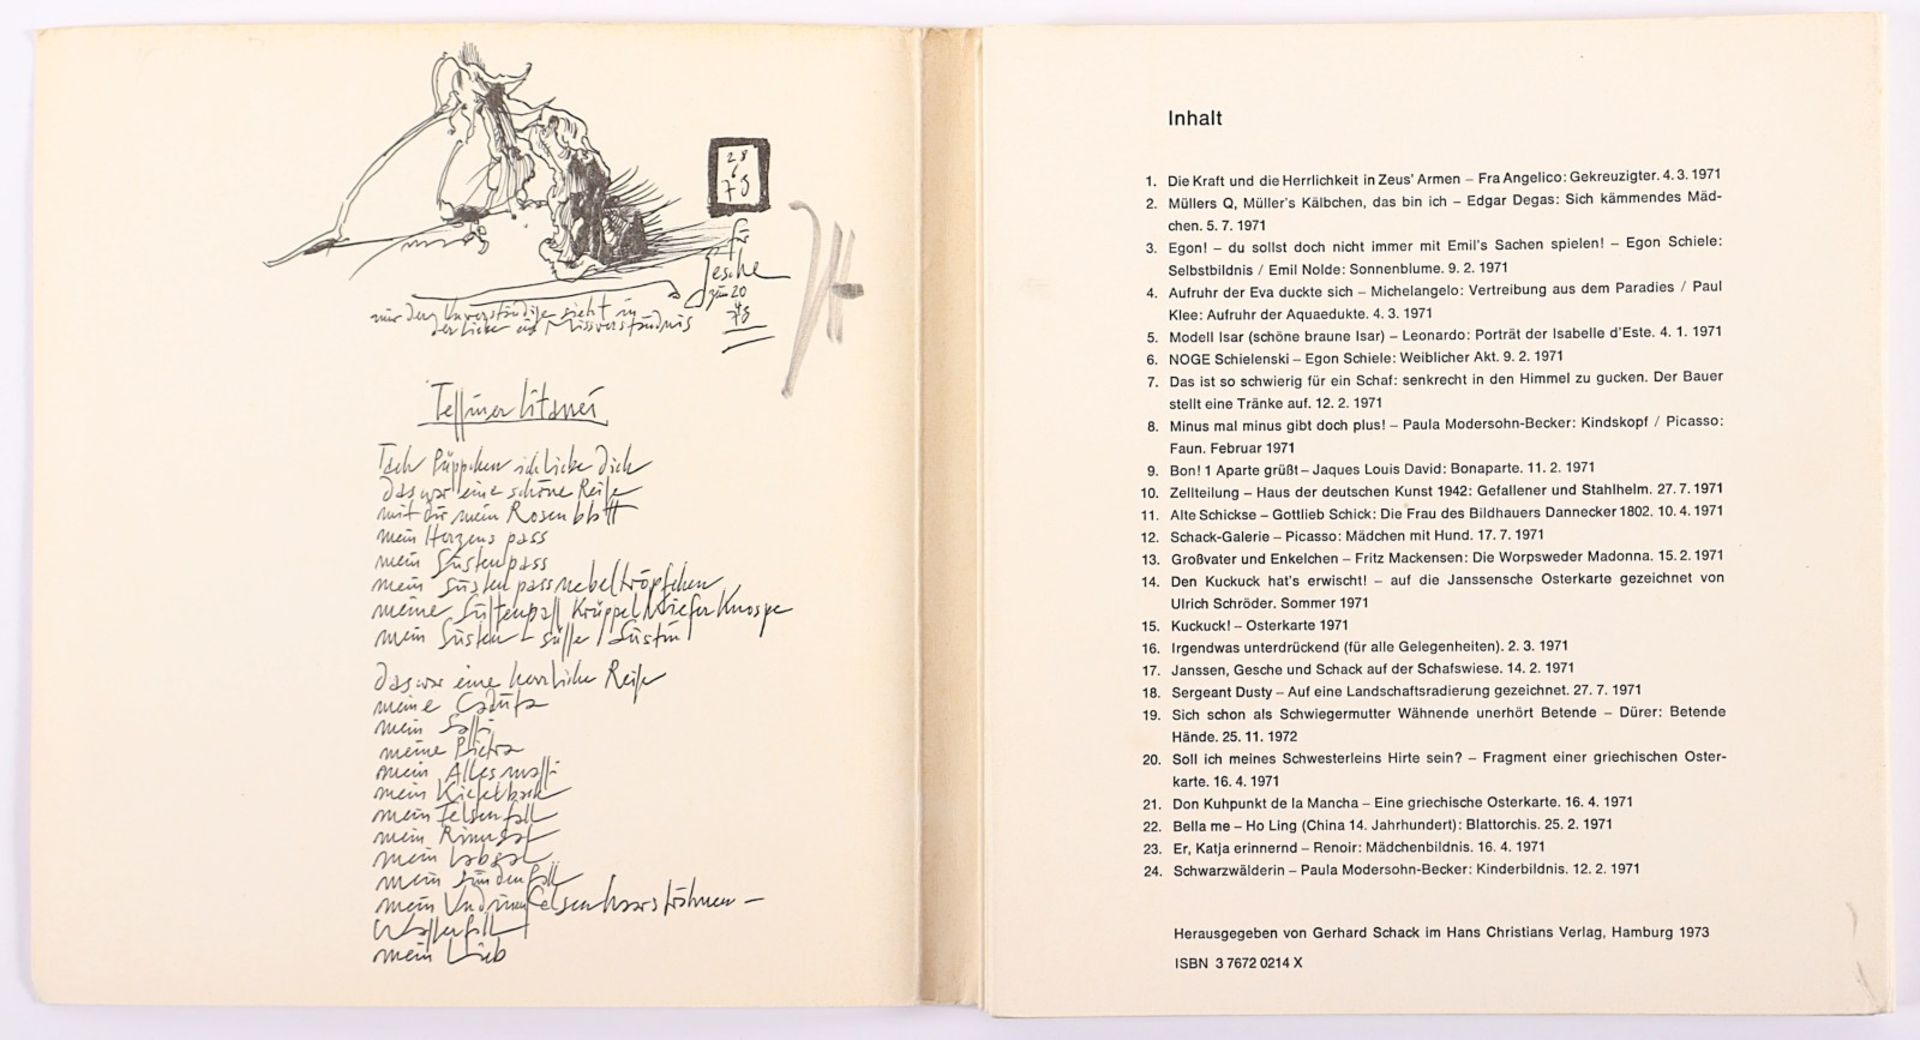 28
6
73
für
Gesche
zum 20
4
73
nur der Unverständige sieht in
der Liebe ein Missverständnis
Tessiner Litanei
Tach Püppchen ich liebe Dich
das war eine schöne Reise
mit dir mein Rosenblatt
mein Herzens pass
mein Sustenpass
mein Susten passnebeltröpfchen
meine Sustenpass Krüppel Kiefer Knospe
mein Susten - süsser
das war eine herrliche Reise
meine
mein
meine Pietra
mein
mein
mein Felsenfall
mein Rinnsal
mein Labsal
mein Sündenfall
mein
Wasserfall
mein Lieb
Inhalt
1. Die Kraft und die Herrlichkeit in Zeus' Armen – Fra Angelico: Gekreuzigter. 4. 3. 1971
2. Müllers Q, Müller's Kälbchen, das bin ich – Edgar Degas: Sich kämmendes Mäd-
chen. 5. 7. 1971
3. Egon! – du sollst doch nicht immer mit Emil's Sachen spielen! – Egon Schiele:
Selbstbildnis / Emil Nolde: Sonnenblume. 9. 2. 1971
4. Aufruhr der Eva duckte sich – Michelangelo: Vertreibung aus dem Paradies / Paul
Klee: Aufruhr der Aquaedukte. 4. 3. 1971
5. Modell Isar (schöne braune Isar) – Leonardo: Porträt der Isabelle d'Este. 4. 1. 1971
6. NOGE Schielenski – Egon Schiele: Weiblicher Akt. 9. 2. 1971
7. Das ist so schwierig für ein Schaf: senkrecht in den Himmel zu gucken. Der Bauer
stellt eine Tränke auf. 12. 2. 1971
8. Minus mal minus gibt doch plus! – Paula Modersohn-Becker: Kindskopf / Picasso:
Faun. Februar 1971
9. Bon! 1 Aparte grüßt – Jaques Louis David: Bonaparte. 11. 2. 1971
10. Zellteilung – Haus der deutschen Kunst 1942: Gefallener und Stahlhelm. 27. 7. 1971
11. Alte Schickse – Gottlieb Schick: Die Frau des Bildhauers Dannecker 1802. 10. 4. 1971
12. Schack-Galerie – Picasso: Mädchen mit Hund. 17. 7. 1971
13. Großvater und Enkelchen – Fritz Mackensen: Die Worpsweder Madonna. 15. 2. 1971
14. Den Kuckuck hat's erwischt! – auf die Janssensche Osterkarte gezeichnet von
Ulrich Schröder. Sommer 1971
15. Kuckuck! – Osterkarte 1971
16. Irgendwas unterdrückend (für alle Gelegenheiten). 2. 3. 1971
17. Janssen, Gesche und Schack auf der Schafswiese. 14. 2. 1971
18. Sergeant Dusty – Auf eine Landschaftsradierung gezeichnet. 27. 7. 1971
19. Sich schon als Schwiegermutter Wähnende unerhört Betende – Dürer: Betende
Hände. 25. 11. 1972
20. Soll ich meines Schwesterleins Hirte sein? – Fragment einer griechischen Oster-
karte. 16. 4. 1971
21. Don Kuhpunkt de la Mancha – Eine griechische Osterkarte. 16. 4. 1971
22. Bella me – Ho Ling (China 14. Jahrhundert): Blattorchis. 25. 2. 1971
23. Er, Katja erinnernd – Renoir: Mädchenbildnis. 16. 4. 1971
24. Schwarzwälderin – Paula Modersohn-Becker: Kinderbildnis. 12. 2. 1971
Herausgegeben von Gerhard Schack im Hans Christians Verlag, Hamburg 1973
ISBN 3 7672 0214 X